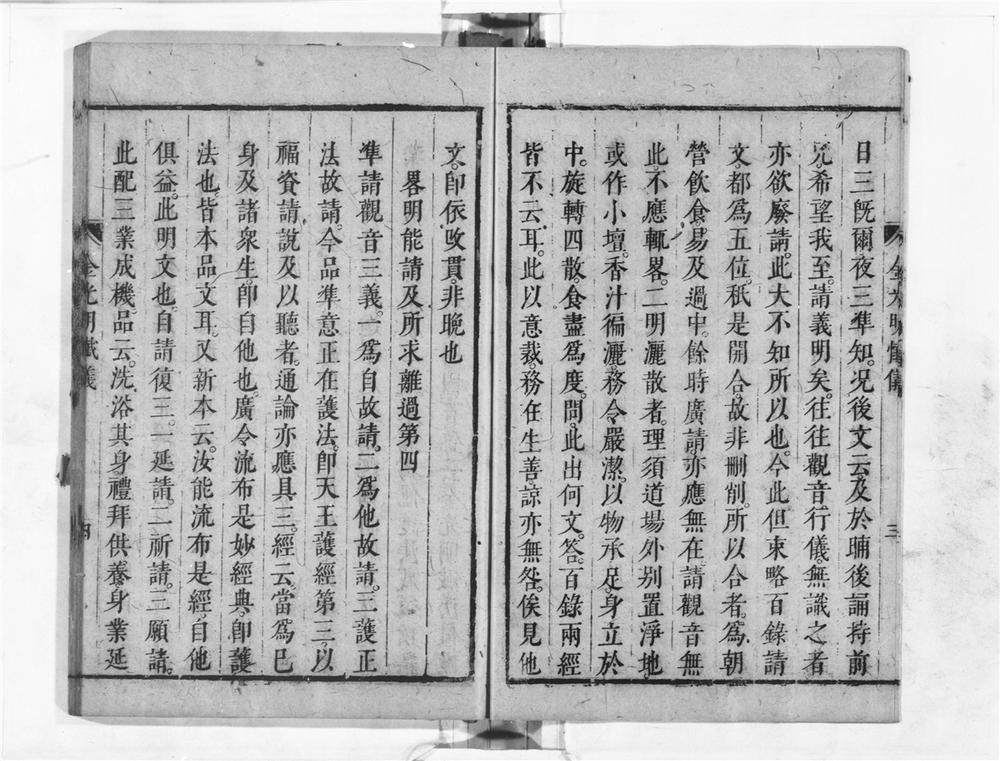 日三旣爾夜三準知。况後文云及於晡後誦持前
呪。希望我至。請義明矣。往往觀音行儀。無識之者
亦欲廢請。此大不知所以也。今此但束略百錄請
文。都爲五位。秖是開合。故非删削。所以合者。爲朝
營飲食。易及過中。餘時廣請亦應無在。請觀音無
此。不應輒畧。二明灑散者。理須道場外別置淨地。
或作小壇。香汁徧灑。務令嚴潔。以物承足。身立於
中。旋轉四散。食盡爲度。問。此出何文。答。百錄兩經
皆不云耳。此以意裁。務在生善。諒亦無咎。俟見他
文。卽依攺貫。非晚也
畧明能請及所求離過第四
準請觀音三義。一爲自故請。二爲他故請。三護正
法故請。今品準意正在護法。卽天王護經第三。以
福資請說及以聽者。通論亦應具三。經云。當爲已
身及諸衆生。卽自他也。廣令流布是妙經典。卽護
法也。皆本品文耳。又新本云。汝能流布是經。自他
俱益。此明文也。自請復三。一延請。二祈請。三願請。
此配三業成機。品云。洗浴其身禮拜供養身業延
金光明懺儀
三
金光明懺儀
四